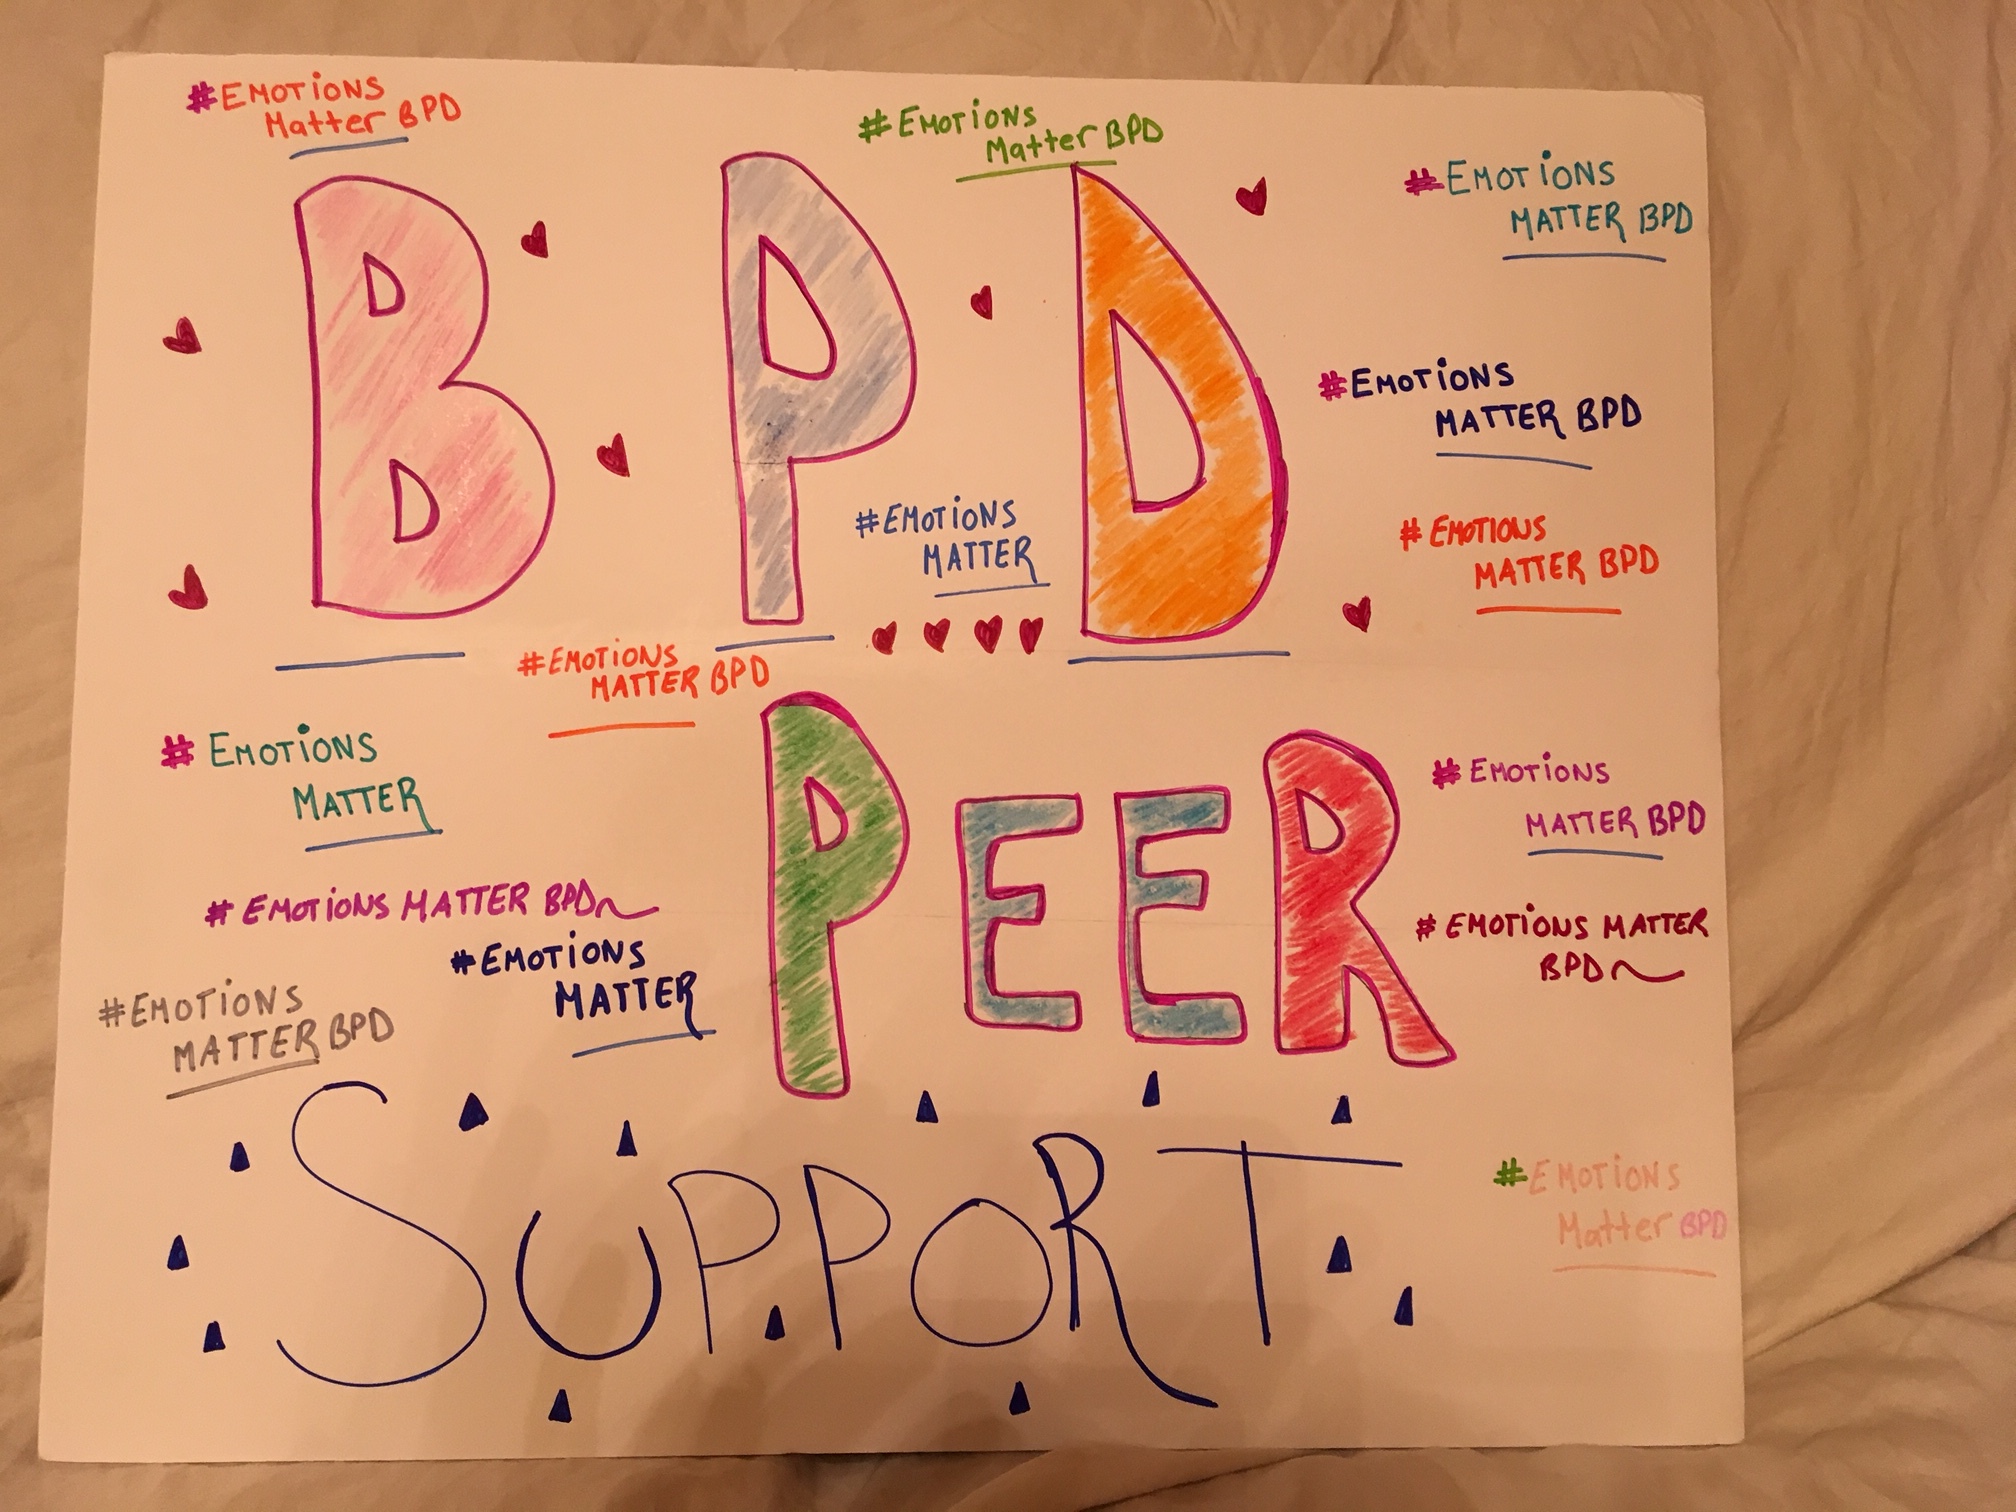 #EMOTiONS
Matter BPD
#EMOTiONS
Matter BPD
#EMOTiONS
MATTER BPD
BPD
#EMOTiONS
MATTER BPD
#EMOTiONS
MATTER
#EMOTIONS
MATTER BPD
#EMOTiONS
MATTER BPD
PEER
# EMOTiONS
MATTER
#EMOTiONS
MATTER BPD
# EMOTiONS MATTER BPD
# EMOTiONS MATTER
BPD
#EMOTiONS
MATTER
#EMOTiONS
MATTER BPD
SUPPORT
#EMOTiONS
Matter BPD